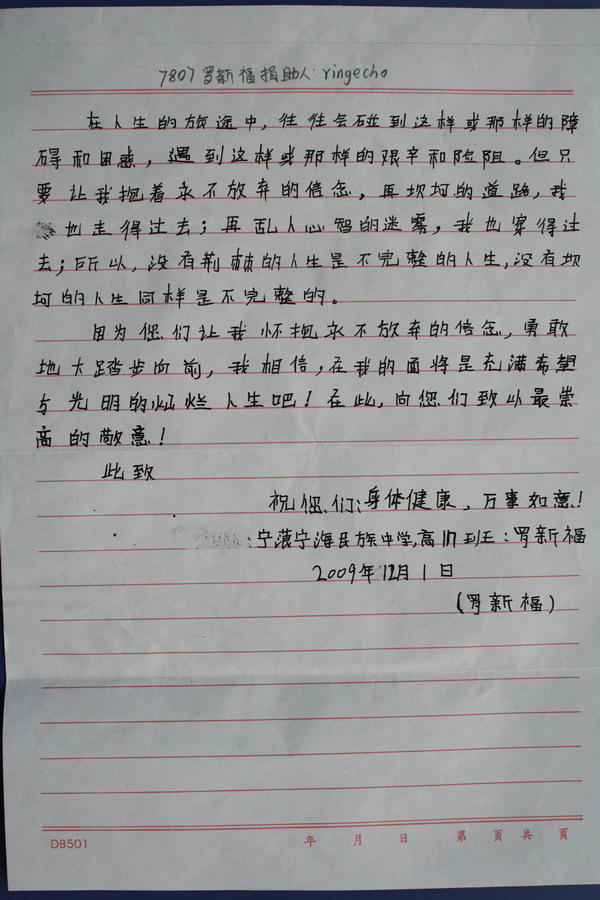 7807罗新福捐助人:ringecho
在人生的旅途中,往往会碰到这样或那样的障
碍和困惑,遇到这样或那样的艰辛和险阻。但只
要让我抱着永不放弃的信念,再坎坷的道路,我
也走得过去;再乱人心智的迷雾,我也穿得过
去;所以,没有荆棘的人生是不完整的人生,没有坎
坷的人生同样是不完整的。
因为您们让我怀抱永不放弃的信念,勇敢
地大踏步向前,我相信,在我的面将是充满希望
与光明的灿烂人生吧!在此,向您们致以最崇
高的敬意!
此致
祝您们:身体健康,万事如意!
:宁蒗宁海民族中学,高117班:罗新福
2009年12月1日
(罗新福)
DB501 年 月 日 第 页 共 页